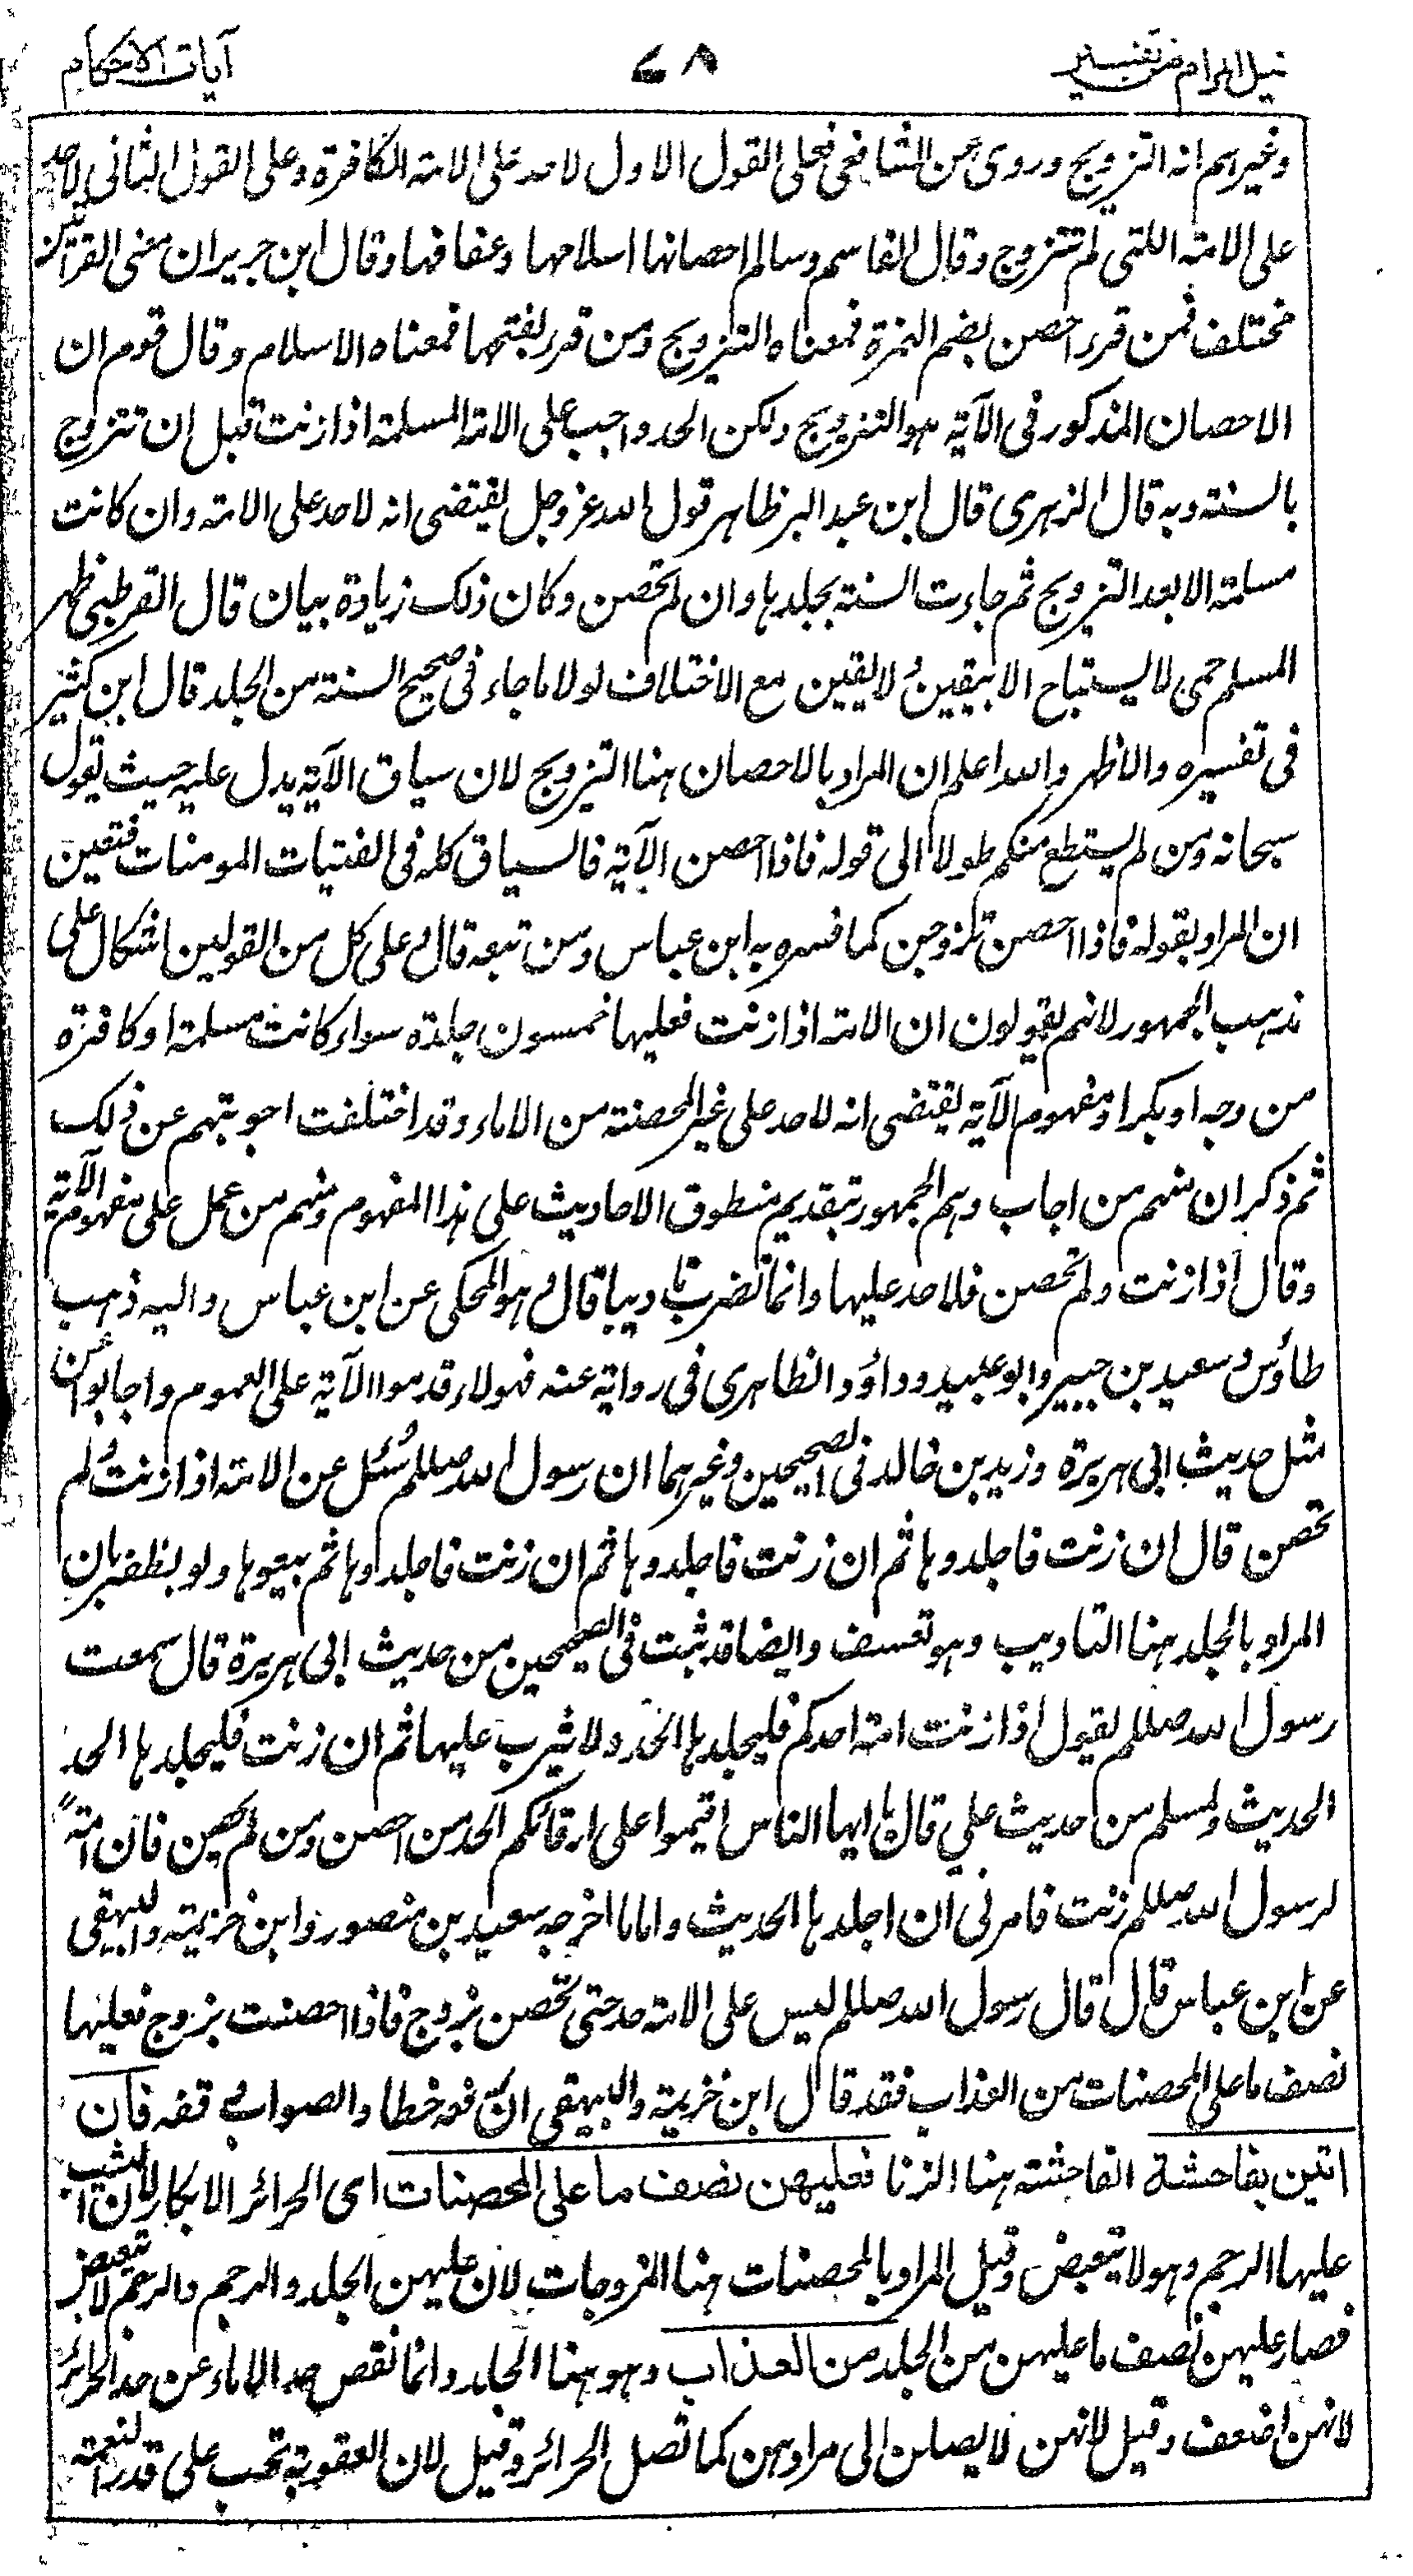 نيل المرام من تفسير ٧٨ آيات الاحكام
وغيرهم انه التزويج وروى عن الشافعي فعلى القول الاول لا حد على الامة الكافرة وعلى القول الثاني لا حد
على الامة اللتي لم تتزوج وقال القاسم وسالم احصانها اسلامها وعفافها وقال ابن جرير ان معنى القراتين
مختلف فمن قرء احصن بضم الهمزة فمعناه التزويج ومن قرء بفتحها فمعناه الاسلام وقال قوم ان
الاحصان المذكور في الآية هو التزويج ولكن الحد واجب على الامة المسلمة اذا زنت قبل ان تتزوج
بالسنة وبه قال الزهري قال ابن عبد البر ظاهر قول الله عز وجل يقتضى انه لا حد على الامة وان كانت
مسلمة الا بعد التزويج ثم جاءت السنة بجلدها وان لم تحصن وكان ذلك زيادة بيان قال القرطبي ظهر
المسلم حمى لا يستباح الا بيقين ولا يقين مع الاختلاف لولا ما جاء في صحيح السنة من الجلد قال ابن كثير
في تفسيره والاظهر والله اعلم ان المراد بالاحصان هنا التزويج لان سياق الآية يدل عليه حيث يقول
سبحانه ومن لم يستطع منكم طولا الى قوله فاذا احصن الآية فالسياق كله في الفتيات المومنات فتعين
ان المراد بقوله فاذا احصن تزوجن كما فسره به ابن عباس ومن تبعه قال وعلى كل من القولين اشكال على
مذهب الجمهور لانهم يقولون ان الامة اذا زنت فعليها خمسون جلدة سواء كانت مسلمة او كافرة
من وجه او بكرا ومفهوم الآية يقتضى انه لا حد على غير المحصنة من الاماء وقد اختلفت اجوبتهم عن ذلك
ثم ذكر ان منهم من اجاب وهم الجمهور بتقديم منطوق الاحاديث على هذا المفهوم ومنهم من عمل على مفهوم الآية
وقال اذا زنت ولم تحصن فلا حد عليها وانما تضرب تاديبا قال وهو المحكى عن ابن عباس واليه ذهب
طاؤس وسعيد بن جبير وابو عبيد وداؤد الظاهرى في رواية عنه فهولاء قدموا الآية على العموم واجابوا عن
مثل حديث ابي هريرة وزيد بن خالد في الصحيحين وغيرهما ان رسول الله صللم سُئل عن الامة اذا زنت ولم
تحصن قال ان زنت فاجلدوها ثم ان زنت فاجلدوها ثم ان زنت فاجلدوها ثم بيعوها ولو بظفير بان
المراد بالجلد هنا التاديب وهو تعسف وايضا قد ثبت في الصحيحين من حديث ابي هريرة قال سمعت
رسول الله صللم يقول اذا زنت امة احدكم فليجلدها الحد ولا يثرب عليها ثم ان زنت فليجلدها الحد
الحديث ولمسلم من حديث علي قال يا ايها الناس اقيموا على ارقائكم الحد من احصن ومن لم يحصن فان امة
لرسول الله صللم زنت فامرني ان اجلدها الحديث واما ما اخرجه سعيد بن منصور وابن خزيمة والبيهقي
عن ابن عباس قال قال رسول الله صللم ليس على الامة حد حتى تحصن بزوج فاذا احصنت بزوج فعليها
نصف ما على المحصنات من العذاب فقد قال ابن خزيمة والبيهقي ان رفعه خطا والصواب وقفه فان
اتين بفاحشة الفاحشة هنا الزنا فعليهن نصف ما على المحصنات اى الحرائر الابكار لان الثيب
عليها الرجم وهو لا يتبعض وقيل المراد بالمحصنات هنا المزوجات لان عليهن الجلد والرجم والرجم لا يتبعض
فصار عليهن نصف ما عليهن من الجلد من العذاب وهو هنا الجلد وانما نقص حد الاماء عن حد الحرائر
لانهن اضعف وقيل لانهن لا يصلن الى مرادهن كما تصل الحرائر وقيل لان العقوبة تجب على قدر النعمة